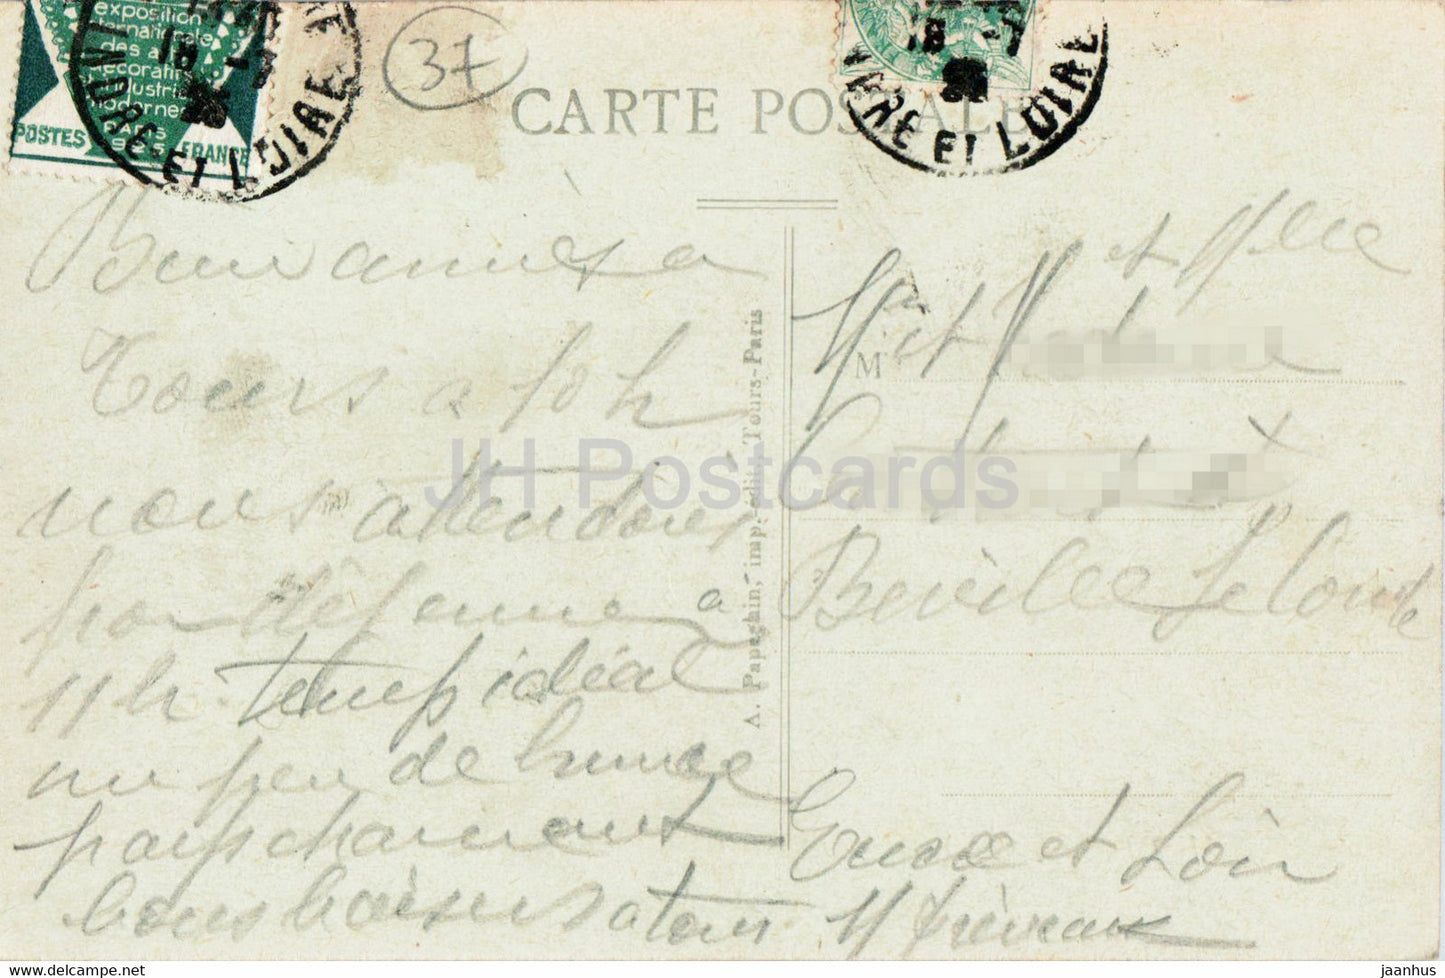 exposition
internationale
des arts
décoratifs
industriels
modernes
Paris
1925
POSTES FRANCE
INDRE ET LOIRE
18
37
CARTE POSTALE
INDRE ET LOIRE
18
Bien arrivés a
Tours a 10 h
nous attendons
pour déjeuner a
11 h temps idéal
un peu de brume
pays charmant
bons baisers a tous
A. Papeghin, imp.-édit., Tours-Paris
M
M et M et Mlle
Béville Le Comte
Eure et Loir
JH Postcards
jaanhus - delcampe.net